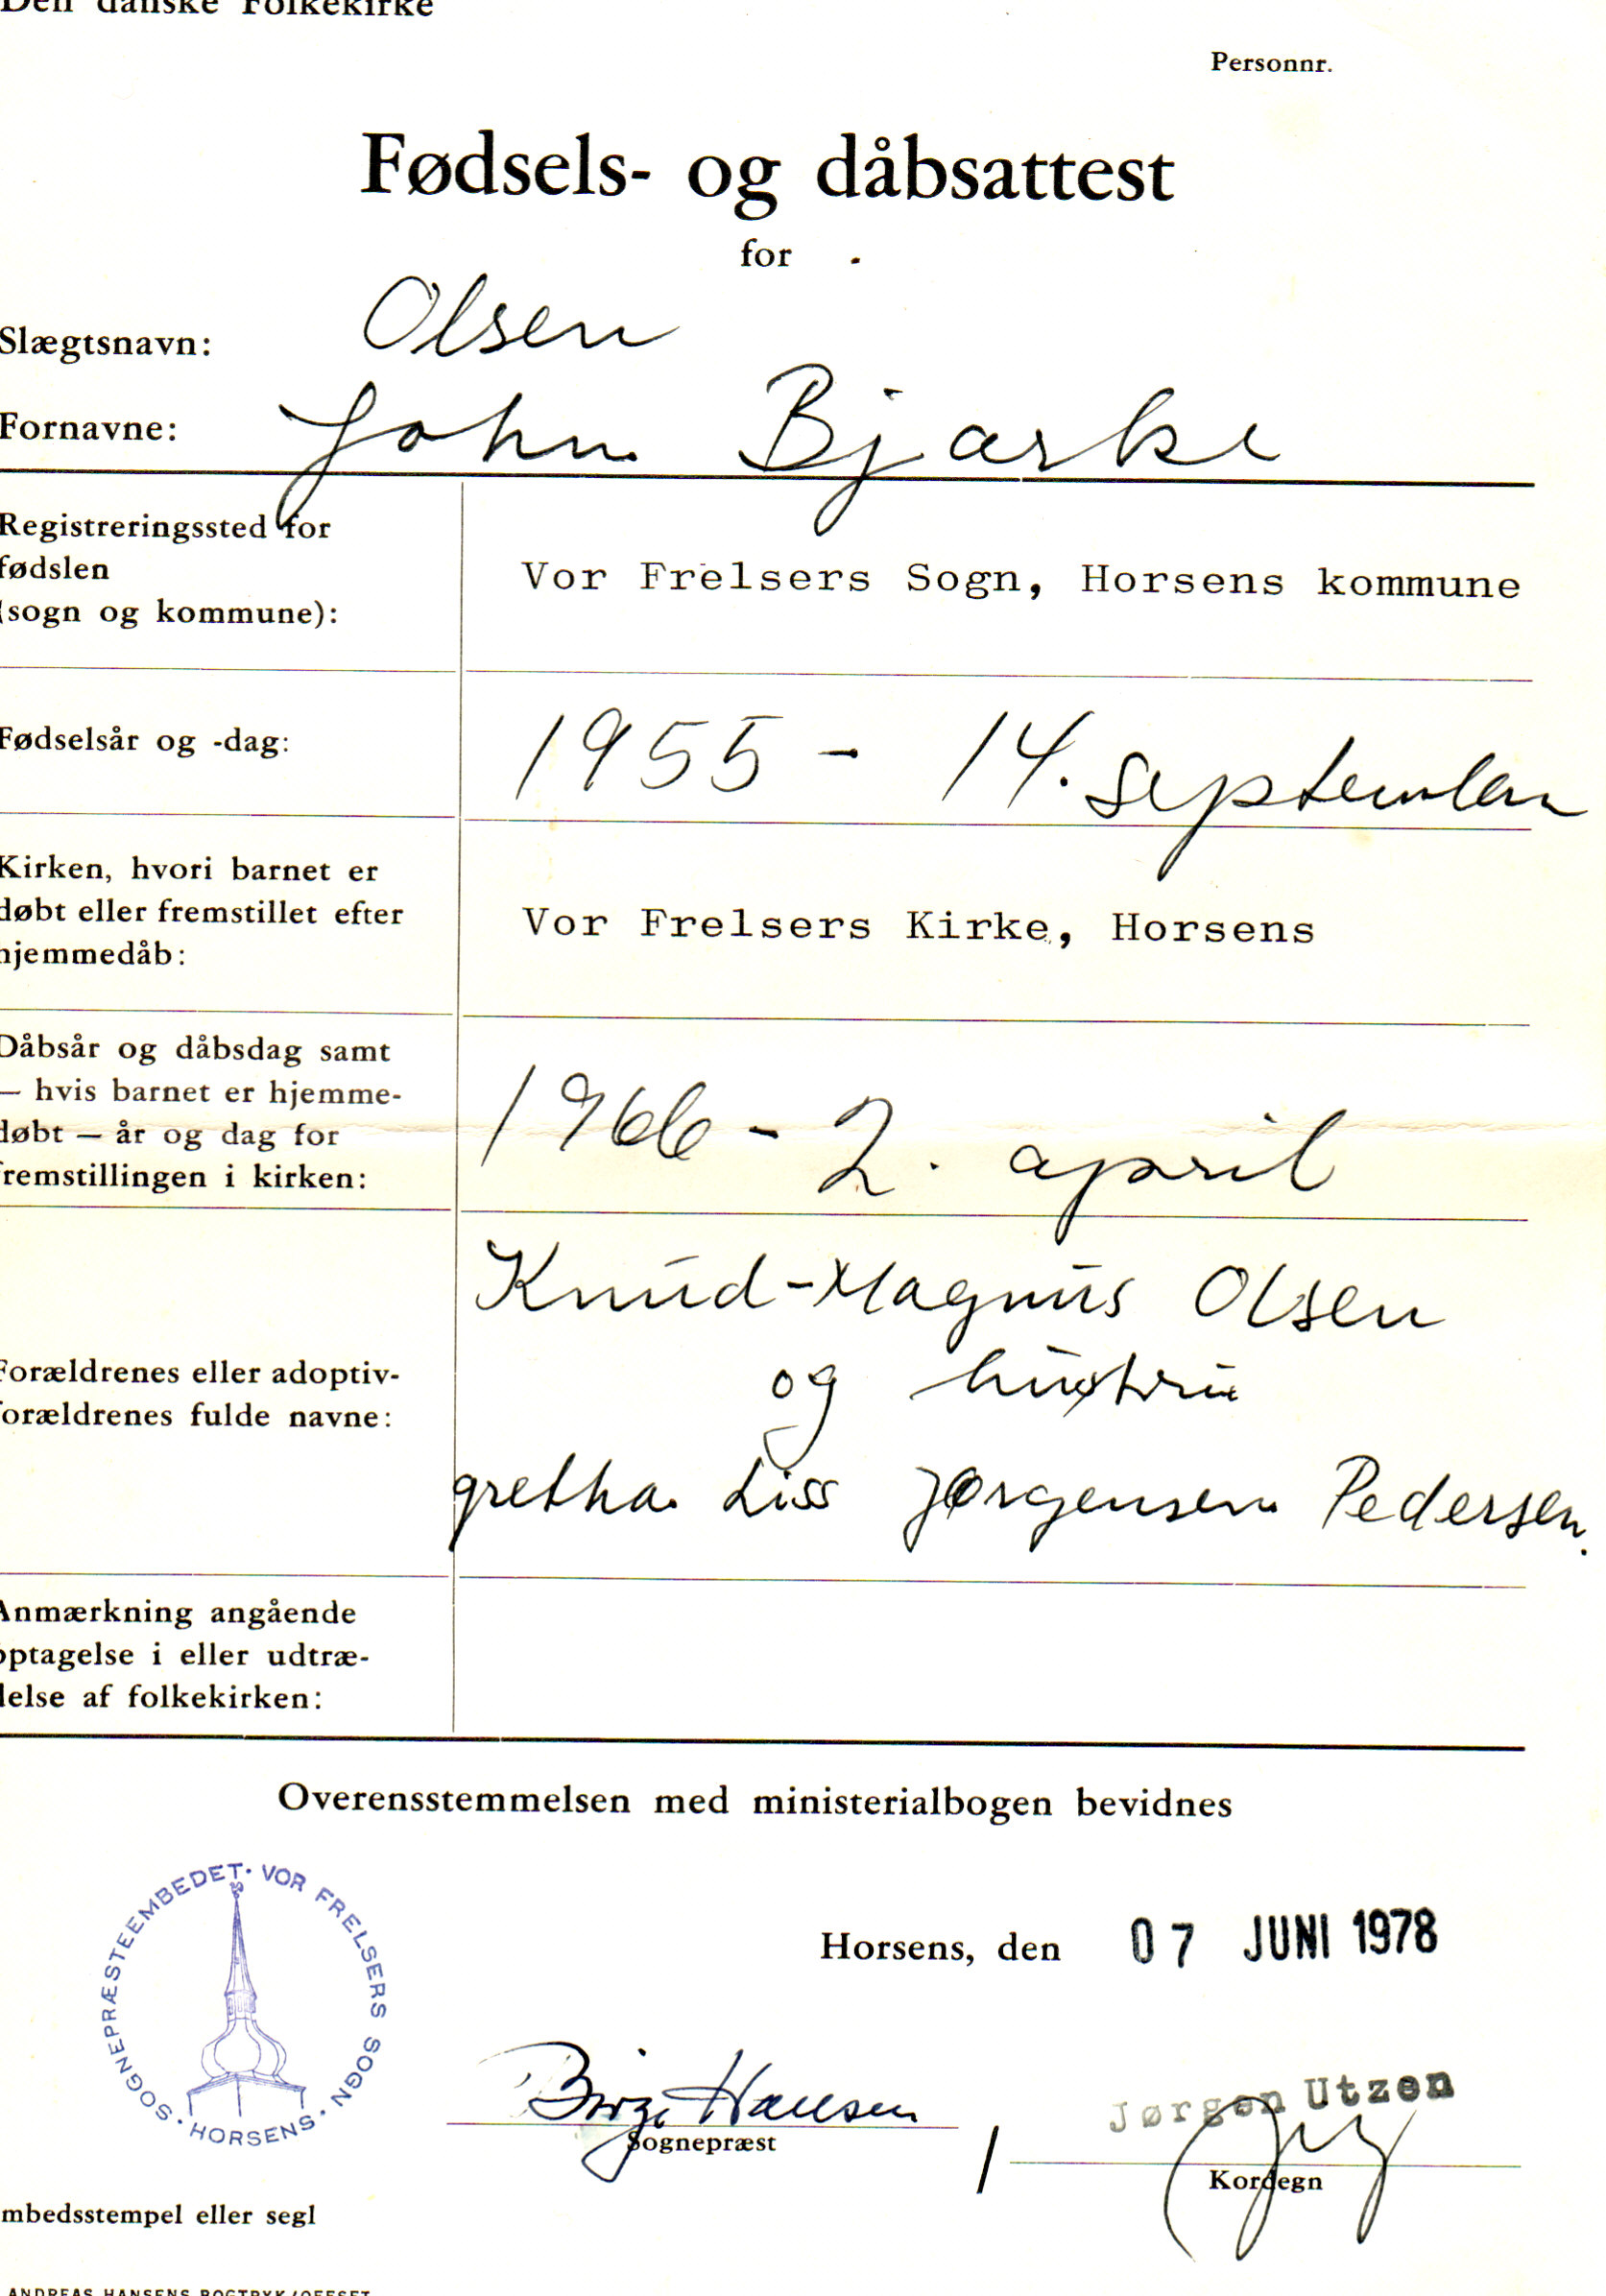 Den danske Folkekirke
Personnr.
Fødsels- og dåbsattest
for
Slægtsnavn: Olsen
Fornavne: John Bjarke
Registreringssted for
fødslen
(sogn og kommune):
Vor Frelsers Sogn, Horsens kommune
Fødselsår og -dag:
1955 - 14. september
Kirken, hvori barnet er
døbt eller fremstillet efter
hjemmedåb:
Vor Frelsers Kirke, Horsens
Dåbsår og dåbsdag samt
— hvis barnet er hjemme-
døbt — år og dag for
fremstillingen i kirken:
1966 - 2. april
Forældrenes eller adoptiv-
forældrenes fulde navne:
Knud-Magnus Olsen
og hustru
gretha Liss Jørgensen Pedersen.
Anmærkning angående
optagelse i eller udtræ-
delse af folkekirken:
Overensstemmelsen med ministerialbogen bevidnes
SOGNEPRÆSTEEMBEDET · VOR FRELSERS SOGN · HORSENS ·
Horsens, den 07 JUNI 1978
Birge Hansen
Sognepræst
/
Jørgen Utzen
Kordegn
mbedsstempel eller segl
ANDREAS HANSENS BOGTRYK/OFFSET